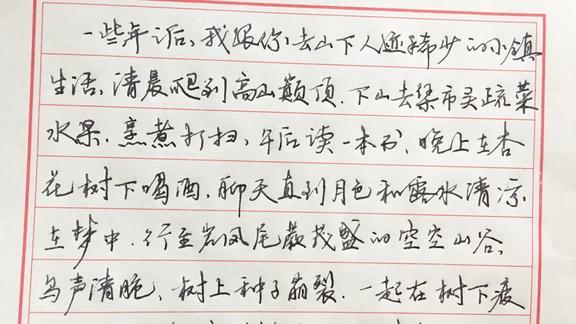 一些年后，我跟你去山下人迹稀少的小镇
生活，清晨爬到高山巅顶，下山去集市买蔬菜
水果，烹煮打扫，午后读一本书，晚上在杏
花树下喝酒，聊天直到月色和露水清凉
在梦中，行至岩凤尾蕨茂盛的空空山谷，
鸟声清脆，树上种子崩裂，一起在树下疲